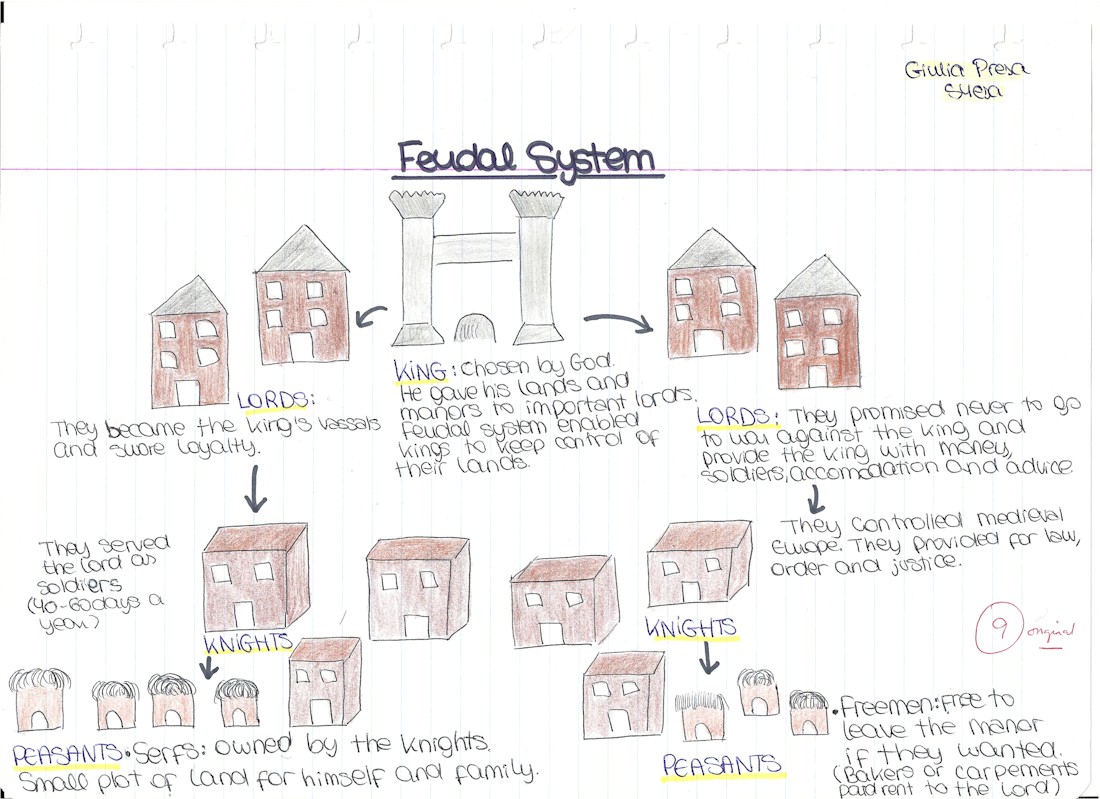 Giulia Presa
Feudal System
KING: Chosen by God.
He gave his lands and
manors to important lords.
Feudal system enabled
kings to keep control of
their lands.
LORDS:
They became the king's vassals
and swore loyalty.
LORDS: They promised never to go
to war against the king and
provide the king with money,
soldiers, accomodation and advice.
They served
the lord as
soldiers
(40-60 days a
year)
They controlled medieval
Europe. They provided for law,
order and justice.
KNIGHTS
KNIGHTS
9 original
PEASANTS • Serfs: owned by the knights.
Small plot of land for himself and family.
PEASANTS
• Freemen: free to
leave the manor
if they wanted.
(Bakers or carpements
paid rent to the lord)